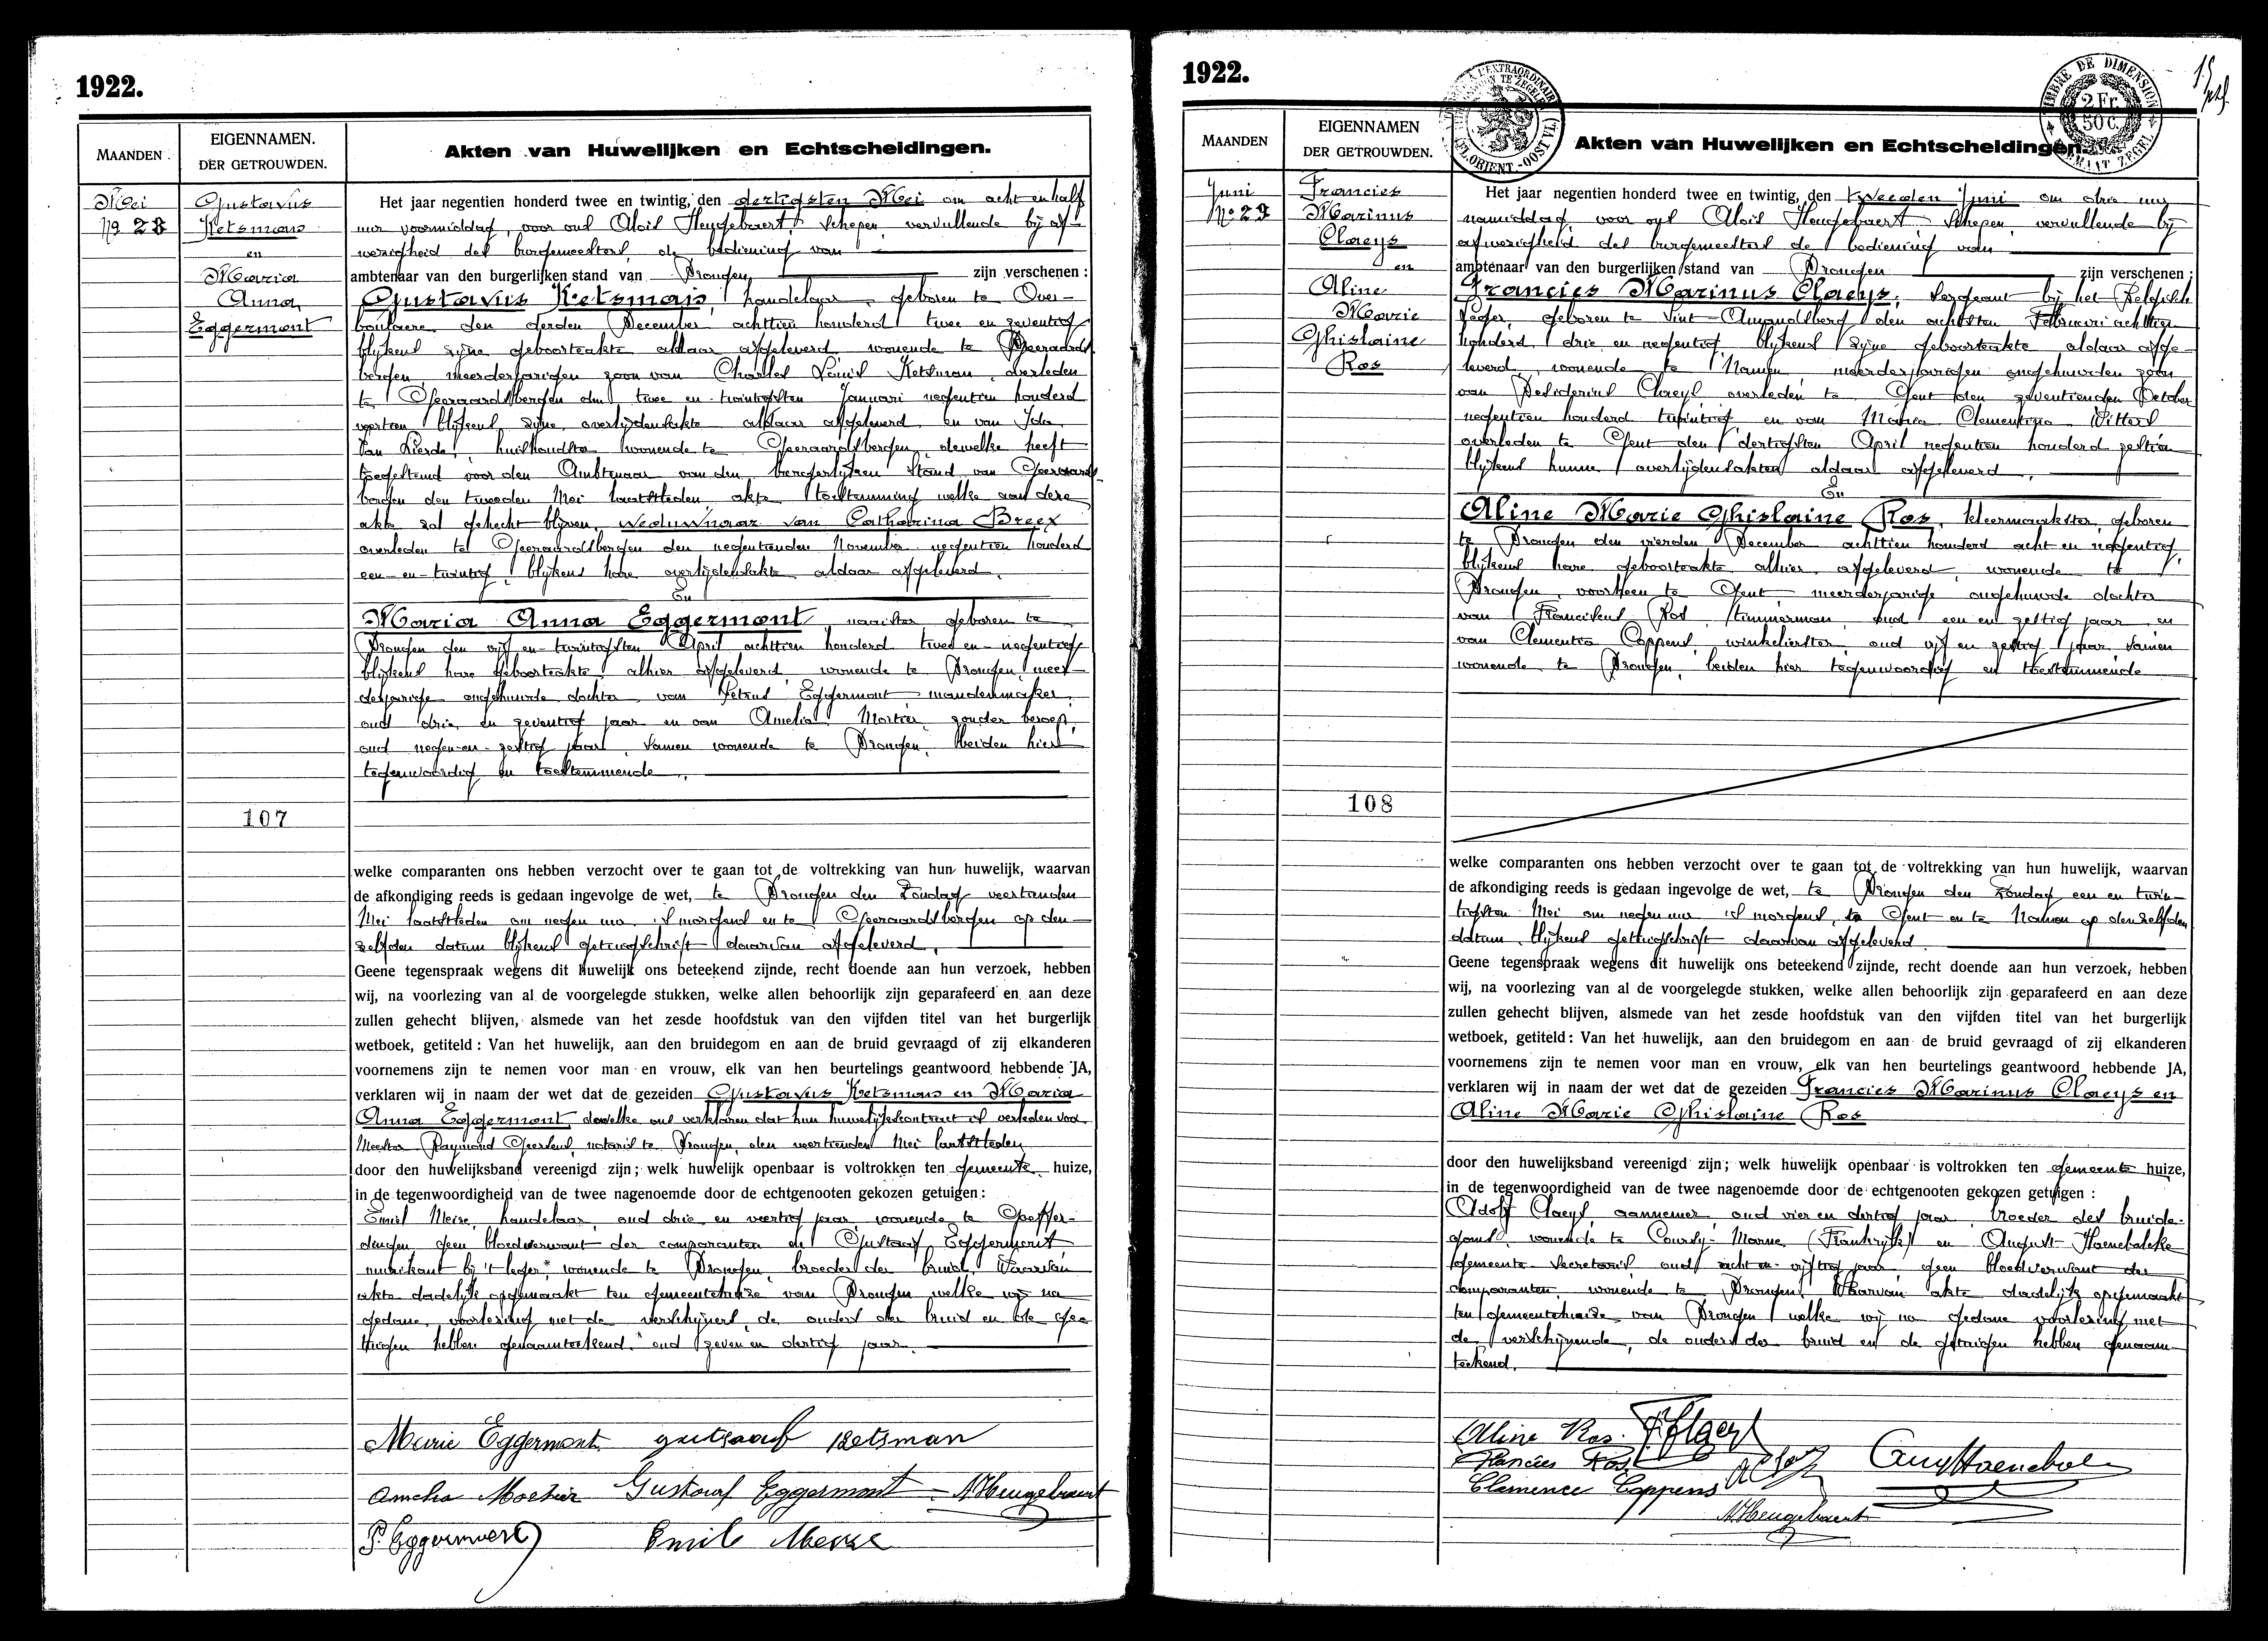 1922.
MAANDEN.
EIGENNAMEN.
DER GETROUWDEN.
Akten van Huwelijken en Echtscheidingen.
Mei
No 28
Gustavus
Ketsman
en
Maria
Anna
Eggermont
107
Het jaar negentien honderd twee en twintig, den dertigsten Mei om acht en half
uur voormiddag, voor ons Aloïs Heugebaert, Schepen, vervullende bij af-
wezigheid des burgemeesters, de bediening van
ambtenaar van den burgerlijken stand van Drongen, zijn verschenen:
Gustavus Ketsman, handelaar, geboren te Over-
boulaere den derden December achttien honderd twee en zeventig
blijkens zijne geboorteakte aldaar afgeleverd, wonende te Geeraards-
bergen, meerderjarigen zoon van Charles Louis Ketsman, overleden
te Geeraardsbergen den twee en twintigsten Januari negentien honderd
veertien blijkens zijne overlijdensakte aldaar afgeleverd en van Ida
Van Lierde, huishoudster wonende te Geeraardsbergen, dewelke heeft
toegestemd voor den Ambtenaar van den burgerlijken Stand van Geeraards-
bergen den tweeden Mei laatstleden akte toestemming welke aan deze
akte zal gehecht blijven, weduwnaar van Catharina Breex
overleden te Geeraardsbergen den negentienden November negentien honderd
een-en-twintig, blijkens hare overlijdensakte aldaar afgeleverd.
En
Maria Anna Eggermont, naaister geboren te
Drongen den vijf en twintigsten April achttien honderd twee en negentig
blijkens hare geboorteakte alhier afgeleverd, wonende te Drongen, meer-
derjarige ongehuwde dochter van Petrus Eggermont mandenmaker,
oud drie en zeventig jaar en van Amelia Mortier, zonder beroep,
oud negen-en-zestig jaar, samen wonende te Drongen, beiden hier
tegenwoordig en toestemmende.
welke comparanten ons hebben verzocht over te gaan tot de voltrekking van hun huwelijk, waarvan
de afkondiging reeds is gedaan ingevolge de wet, te Drongen den Zondag veertienden
Mei laatstleden om negen uur 's morgens en te Geeraardsbergen op den-
zelfden datum blijkens getuigschrift daarvan afgeleverd.
Geene tegenspraak wegens dit huwelijk ons beteekend zijnde, recht doende aan hun verzoek, hebben
wij, na voorlezing van al de voorgelegde stukken, welke allen behoorlijk zijn geparafeerd en aan deze
zullen gehecht blijven, alsmede van het zesde hoofdstuk van den vijfden titel van het burgerlijk
wetboek, getiteld: Van het huwelijk, aan den bruidegom en aan de bruid gevraagd of zij elkanderen
voornemens zijn te nemen voor man en vrouw, elk van hen beurtelings geantwoord hebbende JA,
verklaren wij in naam der wet dat de gezeiden Gustavus Ketsman en Maria
Anna Eggermont dewelke ons verklaren dat hun huwelijkscontract is verleden voor
Meester Raymond Geerkens, notaris te Drongen, den veertienden Mei laatstleden
door den huwelijksband vereenigd zijn; welk huwelijk openbaar is voltrokken ten gemeente huize,
in de tegenwoordigheid van de twee nagenoemde door de echtgenooten gekozen getuigen:
Emiel Meire, handelaar, oud drie en veertig jaar, wonende te Goeffer-
dingen geen bloedverwant der comparanten en Gustaaf Eggermont
muzikant bij 't leger* wonende te Drongen, broeder der bruid. Waarvan
akte dadelijk opgemaakt ten gemeentehuize van Drongen welke wij na
gedane voorlezing met de verschijners, de ouders der bruid en de ge-
tuigen hebben genaamteekend. *oud zeven en dertig jaar.
Marie Eggermont gustaaf ketsman
Amelia Mortier Gustaaf Eggermont A Heugebaert
P. Eggermont Emile Meire
1922.
TIMBRE DE DIMENSION
2 Fr.
50 c.
FORMAAT ZEGEL
MAANDEN
EIGENNAMEN
DER GETROUWDEN.
Akten van Huwelijken en Echtscheidingen.
Juni
No 29
Francies
Marinus
Claeys
en
Aline
Marie
Ghislaine
Ros
108
Het jaar negentien honderd twee en twintig, den tweeden Juni om drie uur
namiddag, voor ons Aloïs Heugebaert Schepen, vervullende bij
afwezigheid des burgemeesters de bediening van
ambtenaar van den burgerlijken stand van Drongen zijn verschenen:
Francies Marinus Claeys, Sergeant bij het Belgisch
Leger, geboren te Sint-Amandsberg den achtsten Februari achttien
honderd drie en negentig, blijkens zijne geboorteakte aldaar afge-
leverd, wonende te Namen meerderjarigen ongehuwden zoon
van Desiderius Claeys, overleden te Gent den zeventienden October
negentien honderd twintig en van Maria Clementina Witters
overleden te Gent den dertigsten April negentien honderd zestien
blijkens hunne overlijdensakten aldaar afgeleverd.
En
Aline Marie Ghislaine Ros, kleermaakster, geboren
te Drongen den vierden December achttien honderd acht en negentig,
blijkens hare geboorteakte alhier afgeleverd, wonende te
Drongen, voorheen te Gent meerderjarige ongehuwde dochter
van Franciscus Ros, timmerman, oud een en zestig jaar en
van Clementia Coppens, winkelierster, oud vijf en zestig jaar, samen
wonende te Drongen, beiden hier tegenwoordig en toestemmende
welke comparanten ons hebben verzocht over te gaan tot de voltrekking van hun huwelijk, waarvan
de afkondiging reeds is gedaan ingevolge de wet, te Drongen den Zondag een en twin-
tigsten Mei om negen uur 's morgens, te Gent en te Namen op denzelfden
datum, blijkens getuigschrift daarvan afgeleverd.
Geene tegenspraak wegens dit huwelijk ons beteekend zijnde, recht doende aan hun verzoek, hebben
wij, na voorlezing van al de voorgelegde stukken, welke allen behoorlijk zijn geparafeerd en aan deze
zullen gehecht blijven, alsmede van het zesde hoofdstuk van den vijfden titel van het burgerlijk
wetboek, getiteld: Van het huwelijk, aan den bruidegom en aan de bruid gevraagd of zij elkanderen
voornemens zijn te nemen voor man en vrouw, elk van hen beurtelings geantwoord hebbende JA,
verklaren wij in naam der wet dat de gezeiden Francies Marinus Claeys en
Aline Marie Ghislaine Ros
door den huwelijksband vereenigd zijn; welk huwelijk openbaar is voltrokken ten gemeente huize,
in de tegenwoordigheid van de twee nagenoemde door de echtgenooten gekozen getuigen:
Adolf Claeys aannemer, oud vier en dertig jaar, broeder des bruide-
goms, wonende te Courcy-Marne (Frankrijk) en August Haenebalcke
gemeente-Secretaris, oud acht en vijftig jaar, geen bloedverwant der
comparanten, wonende te Drongen. Waarvan akte dadelijk opgemaakt
ten gemeentehuize van Drongen welke wij na gedane voorlezing met
de verschijnende, de ouders der bruid en de getuigen hebben genaam-
teekend.
Aline Ros F Claeys
Francies Ros
Clemence Coppens
A Heugebaert